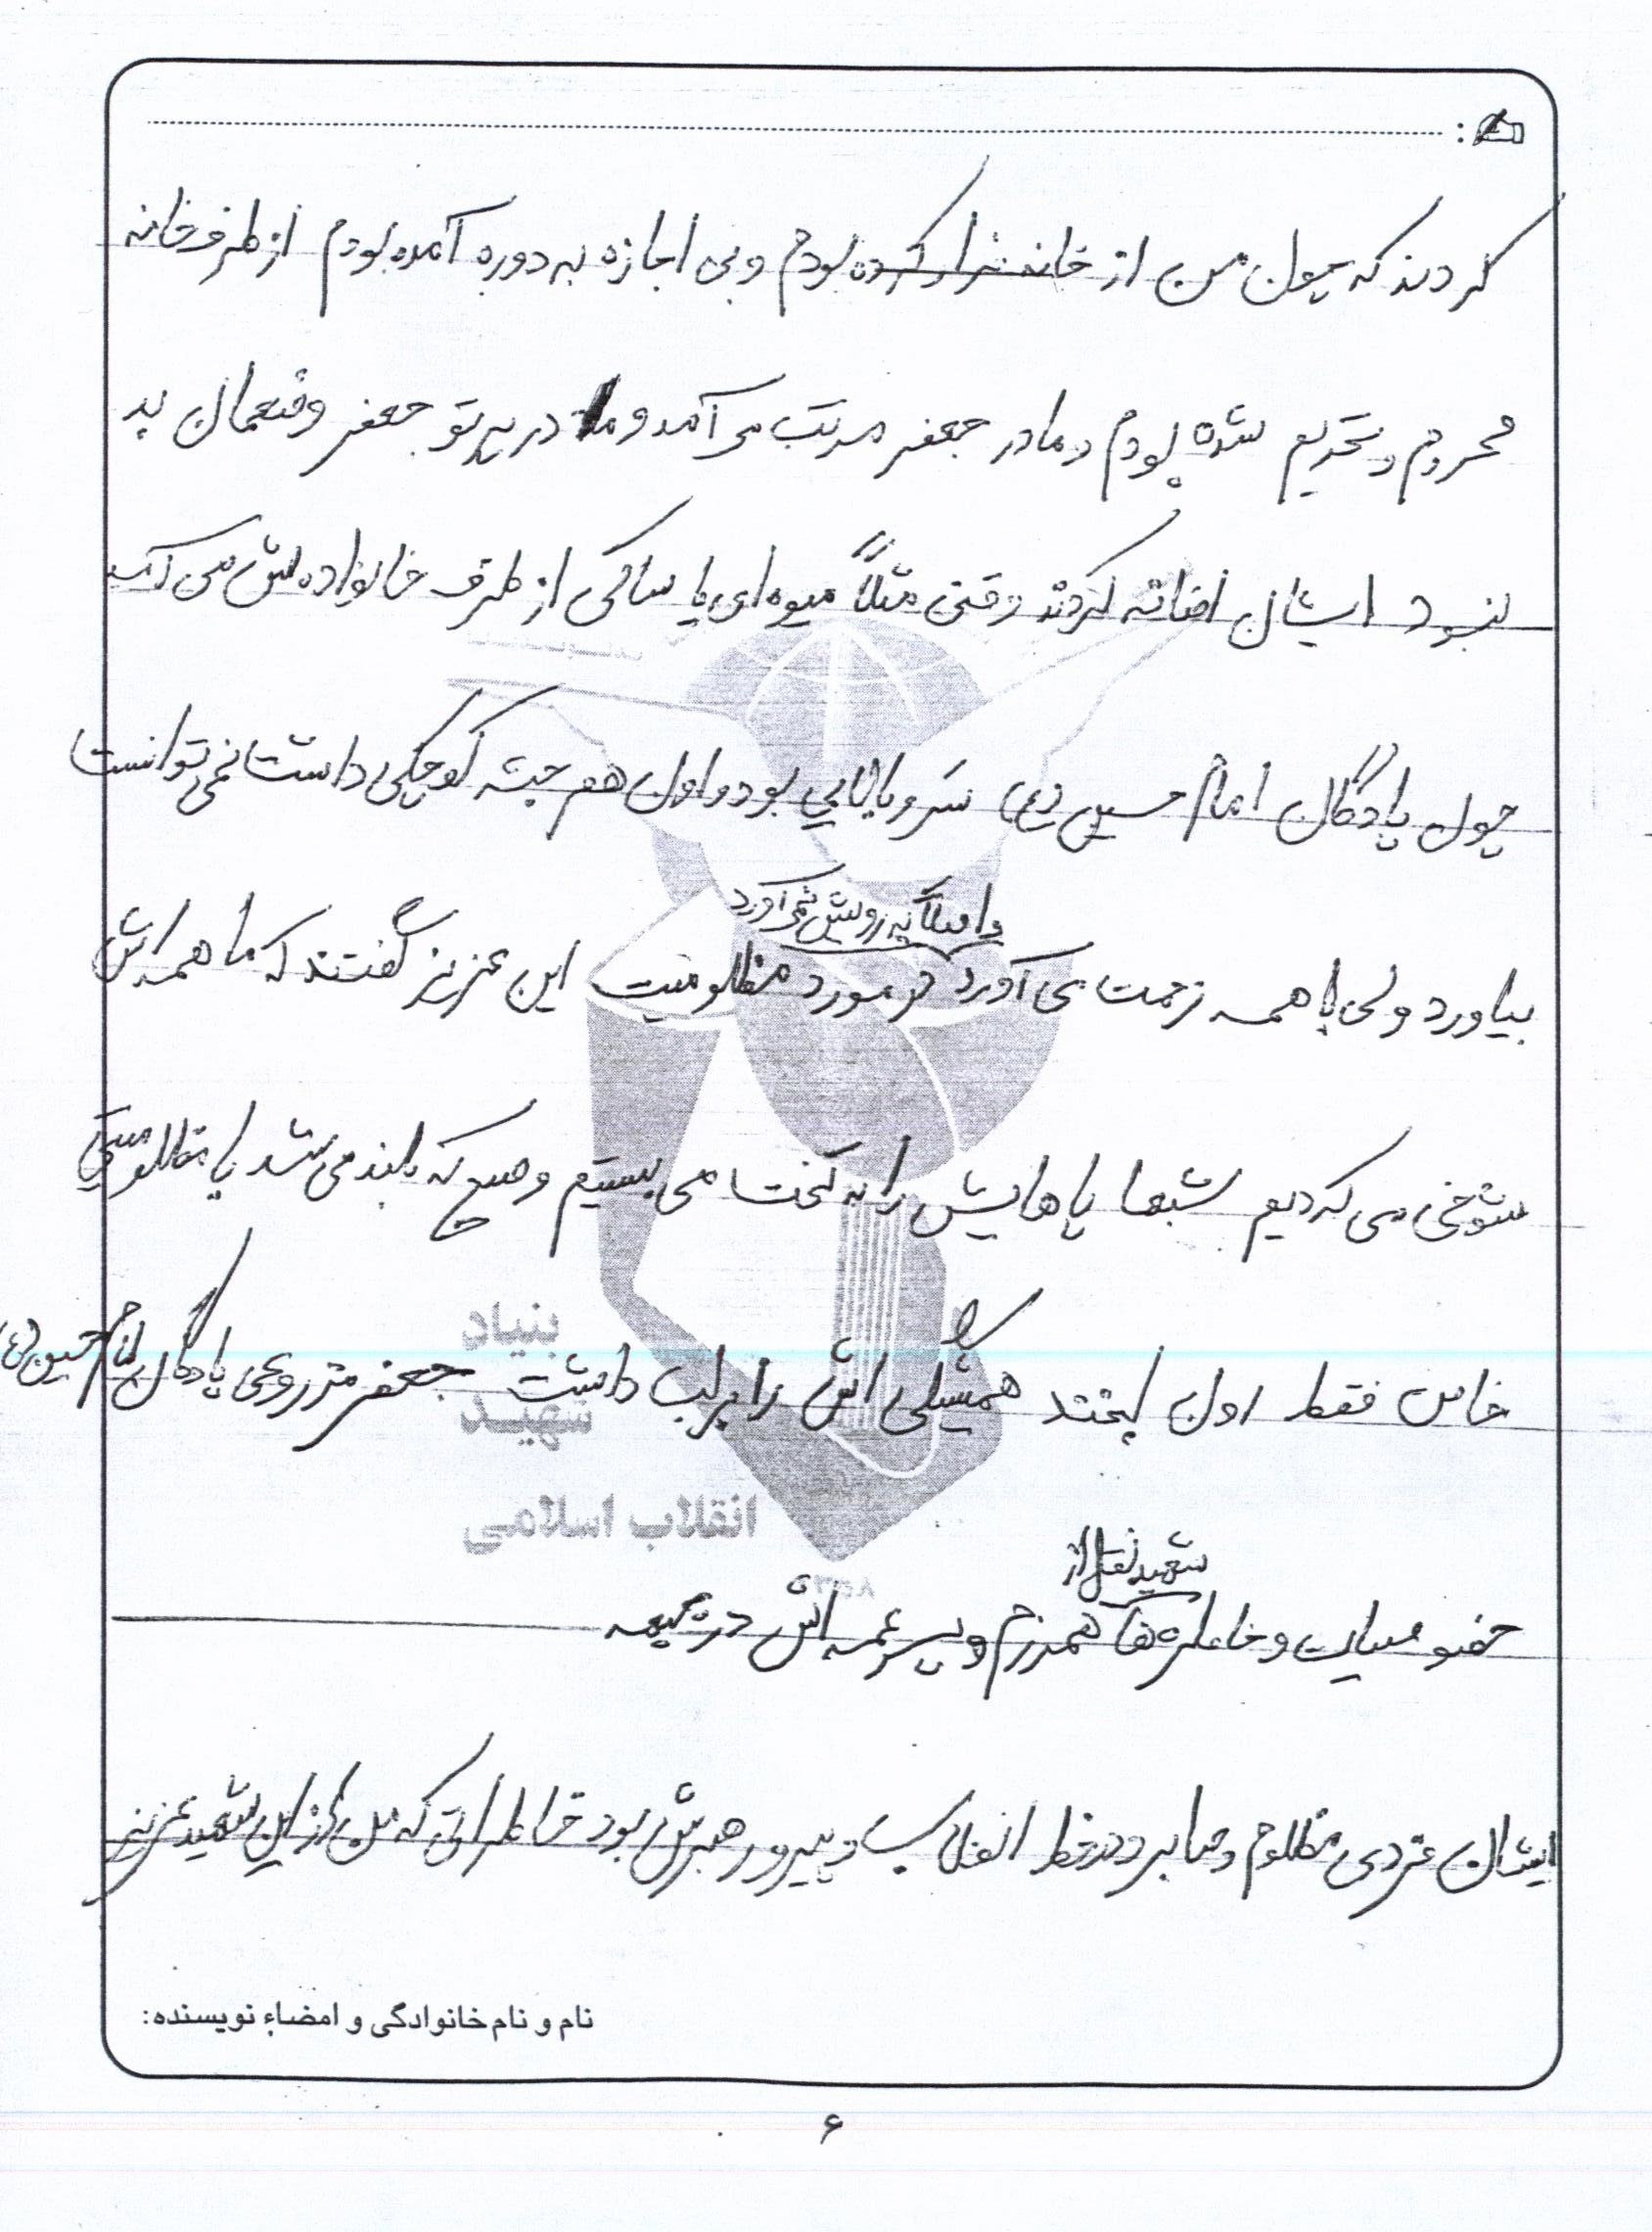 کردند که چون من از خانه فرار کرده بودم و بی اجازه به دوره آمده بودم از طرف خانه
محروم و تحریم شده بودم و مادر جعفر مرتب می آمد و ما در پرتو جعفر وضعمان بد
نبود ایشان اضافه کردند وقتی مثلاً میوه ای یا ساکی از طرف خانواده اش می آمد
چون پادگان امام حسین (ع) سربالایی بود و اون هم جثه کوچکی داشت نمی توانست
و اصلاً به رویش نمی آورد
بیاورد ولی با همه زحمت می آورد در مورد مظلومیت این عزیز گفتند که ما همه اش
شوخی می کردیم شبها پاهایش را به تخت می بستیم و صبح که بلند می شد با مظلومیتی
خاص فقط اون لبخند همیشگی اش را بر لب داشت جعفر مزروعی پادگان امام حسین (ع)
شهید نقل از
خصوصیات و خاطره ها همرزم و پسر عمه اش در جبهه
ایشان فردی مظلوم و صابر و در خط انقلاب و پیرو رهبرش بود خاطراتی که من از این شهید عزیز
بنیاد
شهید
انقلاب اسلامی
نام و نام خانوادگی و امضاء نویسنده:
۶